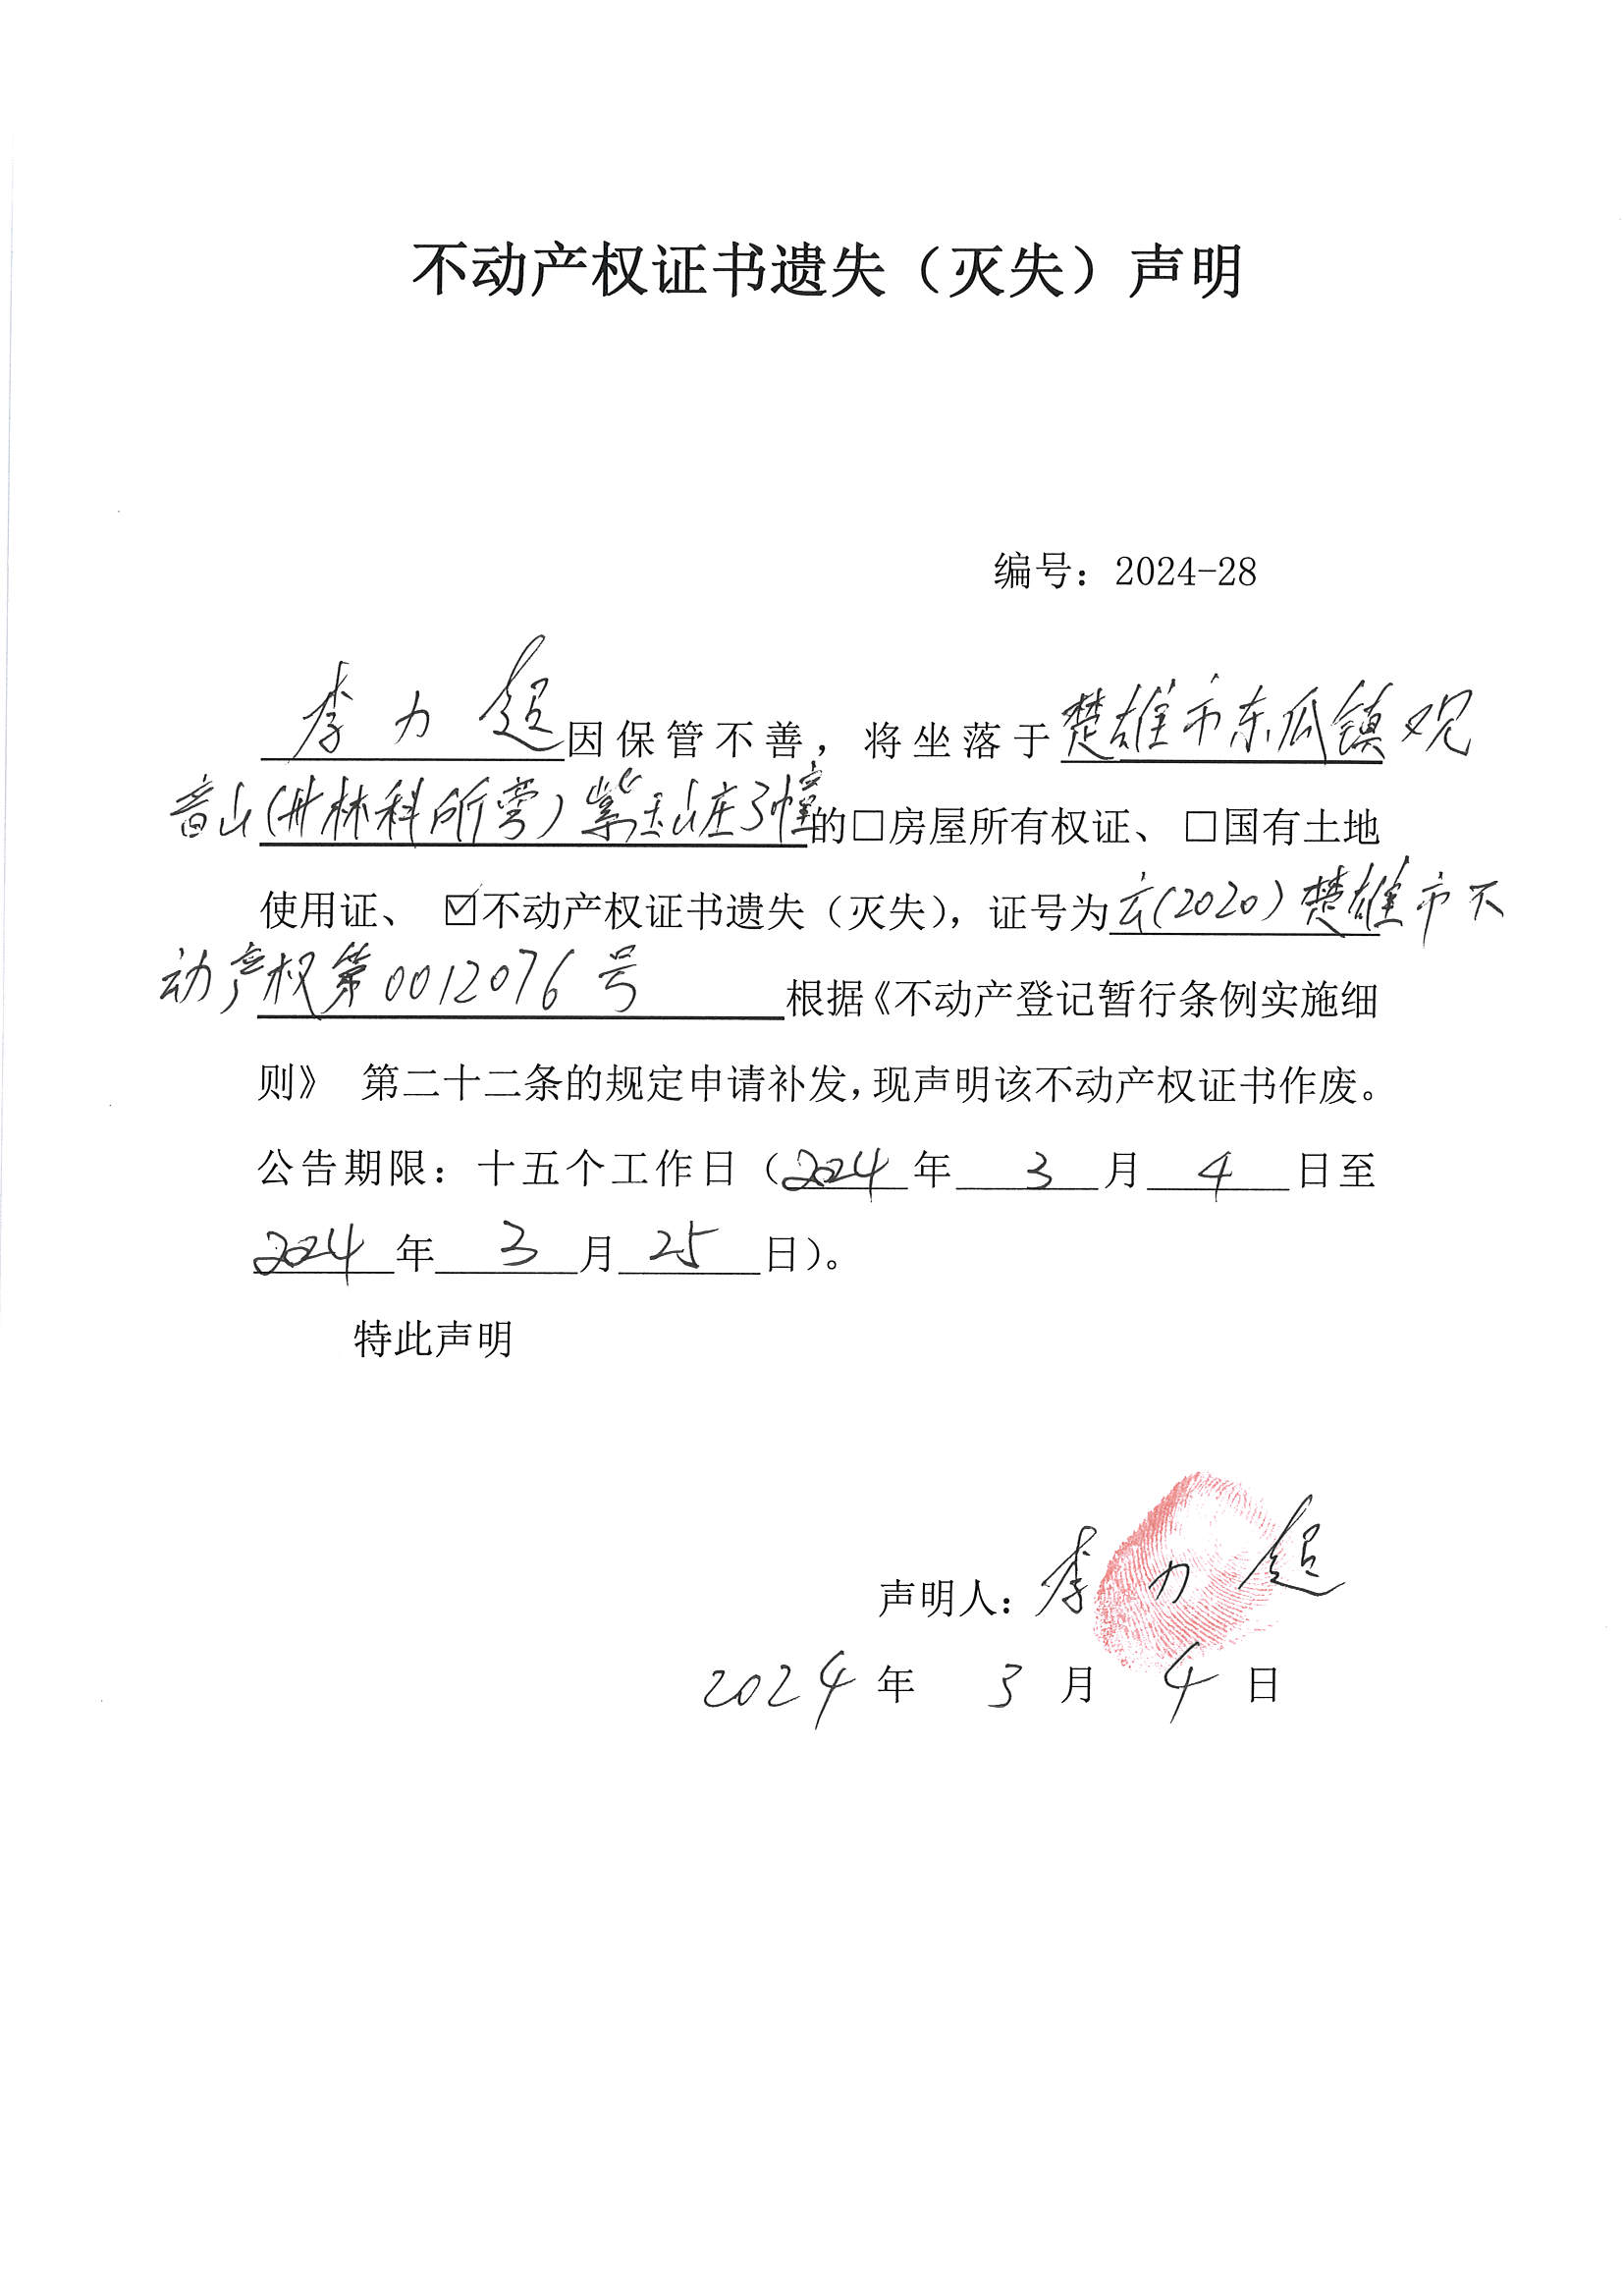 不动产权证书遗失（灭失）声明
编号：2024-28
李力超因保管不善，将坐落于楚雄市东瓜镇观
音山(州林科所旁)紫玉山庄3幢的□房屋所有权证、□国有土地
使用证、☑不动产权证书遗失（灭失），证号为云(2020)楚雄市不
动产权第0012076号根据《不动产登记暂行条例实施细
则》 第二十二条的规定申请补发，现声明该不动产权证书作废。
公告期限：十五个工作日（2024年3月4日至
2024年3月25日）。
特此声明
声明人：李力超
2024年3月4日